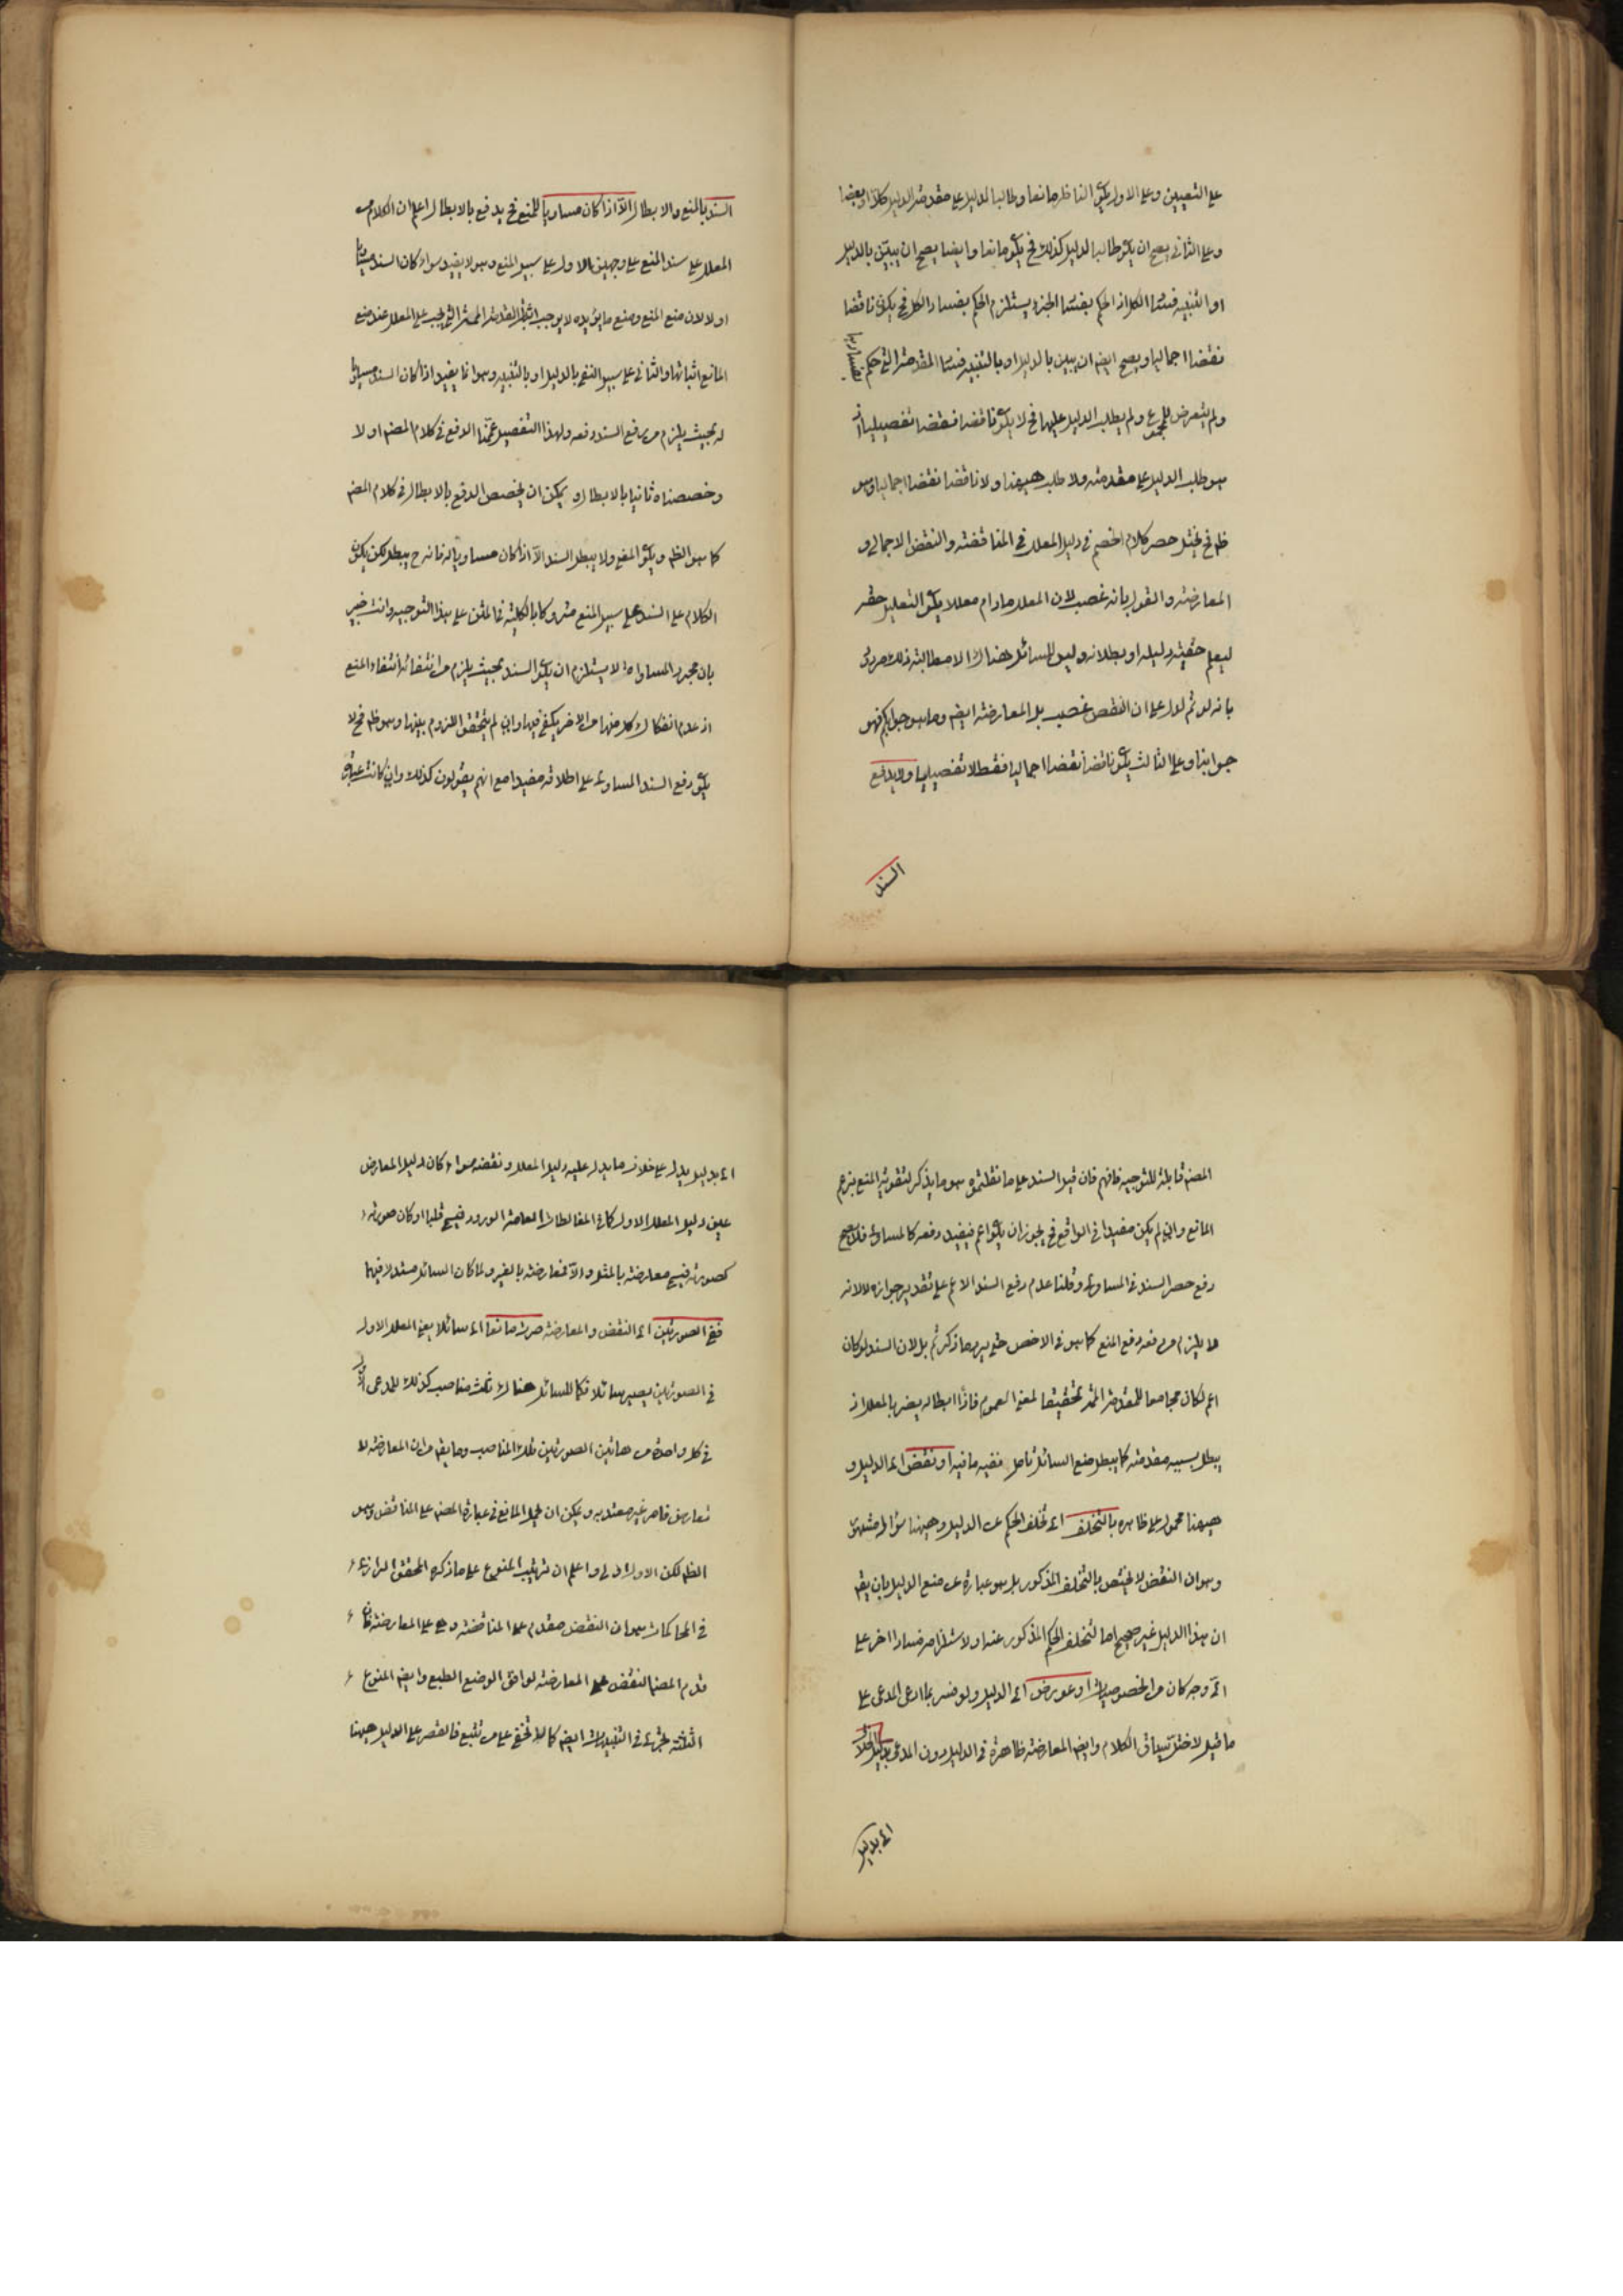 على التعيين وعلى الاول يكون الناظر مانعا وطالبا للدليل على مقدمة الدليل كلا او بعضا
وعلى الثانى يصح ان يكون طالبا الدليل كذلك فح يكون مانعا وايضا يصح ان يبين بالدليل
او التنبيه فساد الكل اذ الحكم بفساد الجزء يستلزم الحكم بفساد الكل فح يكون ناقضا
نقضا اجماليا ويصح ايضا ان يبين بالدليل او بالتنبيه فساد المقدمة التى حكم بفسادها
ولم يتعرض للمجموع ولم يطلب الدليل عليها فح لا يكون ناقضا نقضا تفصيليا اذ
هو طلب الدليل على مقدمته ولا طلب ههنا ولا ناقضا نقضا اجماليا وهو
ظ فح يختل حصر كلام الخصم فى دليل المعلل فى المناقضة والنقض الاجمالى و
المعارضة والقول بانه غصب لان المعلل مادام معللا يكون التعليل حقه
ليعلم حقية دليله او بطلانه وليس للسائل هناك الا مطالبة ذلك مردود
بانه لو تم لدل على ان النقض غصب بل المعارضة ايض وما هو جوابكم فهو
جوابنا وعلى الثالث يكون ناقضا نقضا اجماليا فقط لا تفصيليا ولا يدفع
السند
السند بالمنع والابطال الا اذا كان مساويا للمنع فح يدفع بالابطال اعلم ان الكلام من
المعلل على سند المنع على وجهين الاول على سبيل المنع وهو لا يفيد سواء كان السند مساويا
او لا لان منع المنع ومنع ما يؤيده لا يوجب اثبات المقدمة الممنوعة التى يجب على المعلل عند منع
المانع اثباتها والثانى على سبيل النفى بالدليل او بالتنبيه وهو انما يفيد اذا كان السند مساويا
له بحيث يلزم من رفع السند رفعه ولهذا التفصيل عممنا الدفع فى كلام المصنف اولا
وخصصناه ثانيا بالابطال و يمكن ان يخصص الدفع بالابطال فى كلام المصنف
كما هو الظ ويكون المعنى ولا يبطل السند الا اذا كان مساويا له فانه ح يبطل لكن يكون
الكلام على السند على سبيل المنع متروكا بالكلية فى المتن على هذا التوجيه وانت خبير
بان مجرد المساواة لا يستلزم ان يكون السند بحيث يلزم من انتفائه انتفاء المنع
اذ عدم انفكاك كل منهما من الاخر يكفى فيها وان لم يتحقق اللزوم بينهما وهو ظ فح لا
يكون دفع السند المساوى على اطلاقه مفيدا مع انهم يقولون كذلك وان كانت عبارة
المصنف قابلة للتوجيه فافهم فان قيل السند على ما نقلتموه هو ما يذكر لتقوية المنع بزعم
المانع وان لم يكن مفيدا فى الواقع فح يجوز ان يكون اعم فيفيد دفعه كالمساوى فلا يصح
دفع حصر السند فى المساوى وقلنا عدم دفع السند الاعم على تقدير جوازه لا لانه
لا يلزم من دفعه دفع المنع كما هو فى الاخص حتى يرد ما ذكرتم بل لان السند لو كان
اعم لكان مجامعا للمقدمة الممنوعة تحقيقا لمعنى العموم فاذا ابطاله يضر بالمعلل اذ
يبطل بسببه مقدمته كما يبطل منع السائل تأمل ففيه ما فيه او نقض اى الدليل و
ههنا محمول على ظاهره بالتخلف اى تخلف الحكم عن الدليل وههنا سؤال مشهور
وهو ان النقض لا يختص بالتخلف المذكور بل هو عبارة عن منع الدليل بان يقم
ان هذا الدليل غير صحيح اما لتخلف الحكم المذكور عنه او لاستلزامه فسادا اخر على
اى وجه كان من الخصوصيات او عورض اى الدليل ولو فسر بما ادعى المدعى على
ما قيل لاختل سياق الكلام وايض المعارضة ظاهرة فى الدليل دون المدعى بدليل الخلاف
اى بدليل
اى بدليل يدل على خلاف ما يدل عليه دليل المعلل ونقضه سواء كان دليل المعارض
عين دليل المعلل الاول كما فى المغالطات العامة الورود فيسمى قلبا او كان صورته
كصورته فيسمى معارضة بالمثل والا فمعارضة بالغير ولما كان السائل مستدلا فيهما
ففى الصورتين اى النقض والمعارضة صرت مانعا اى سائلا يعنى المعلل الاول
فى الصورتين يصير سائلا فكما للسائل هناك ثلث مناصب كذلك للمدعى الاول
فى كل واحدة من هاتين الصورتين تلك المناصب وما يقم من ان المعارضة لا
تعارض فامر غير معتد به ويمكن ان يحمل المانع فى عبارة المصنف على المناقض وهو
الظ لكن الاول اولى واعلم ان ترتيب المنوع على ما ذكره المحقق الرازى
فى المحاكمات هو ان النقض مقدم على المناقضة وهى على المعارضة فان
قدم المصنف النقض على المعارضة لوافق الوضع الطبع وايض المنوع
الثلثة تجرى فى التنبيهات ايض كما لا يخفى على من تتبع فالقصر على الدليل ههنا